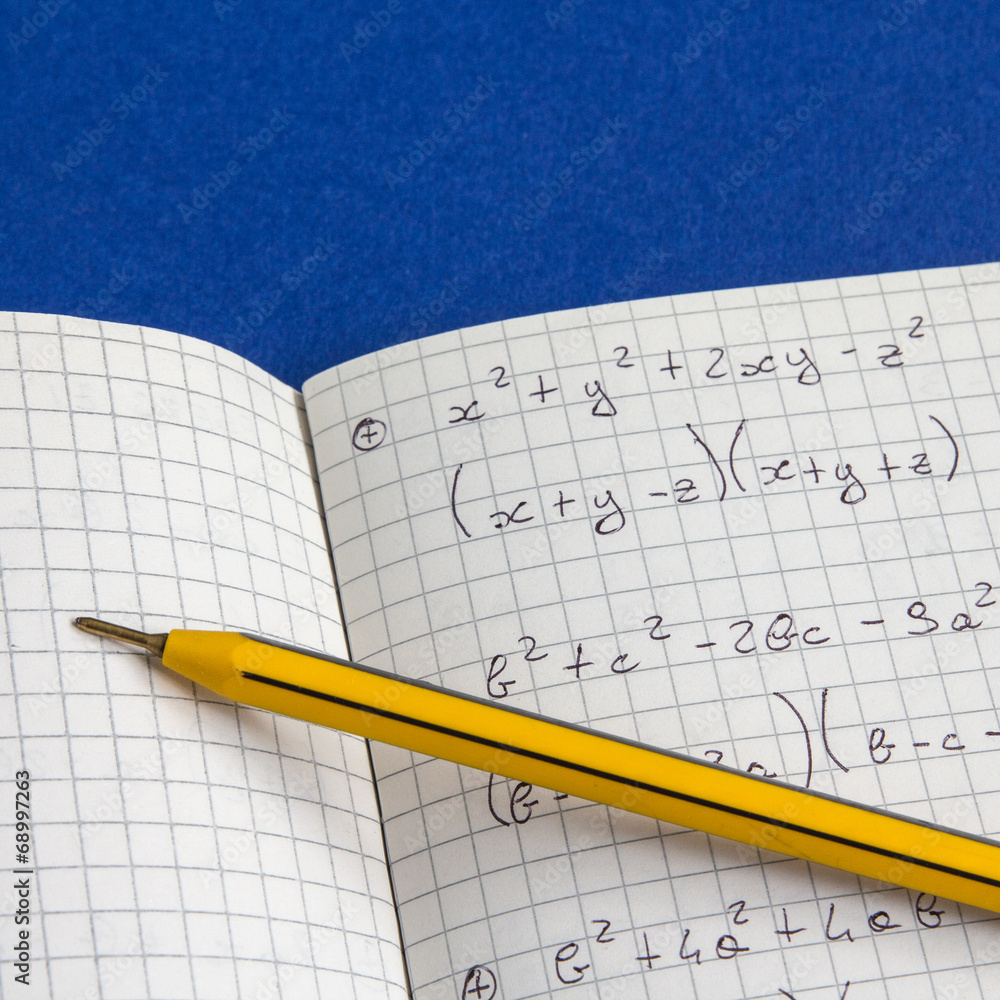 ⊕ x² + y² + 2xy - z²
(x + y - z)(x + y + z)
b² + c² - 2bc - 9a²
(b - 3a)(b - c -
⊕ b² + 4a² + 4ab
Adobe Stock | #68997263